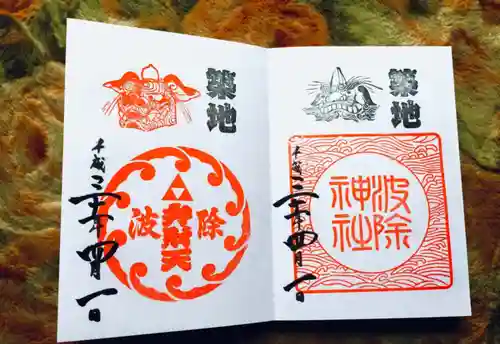 築地
波除神社
平成三十一年四月一日
築地
波除
弁財天
平成三十一年四月一日